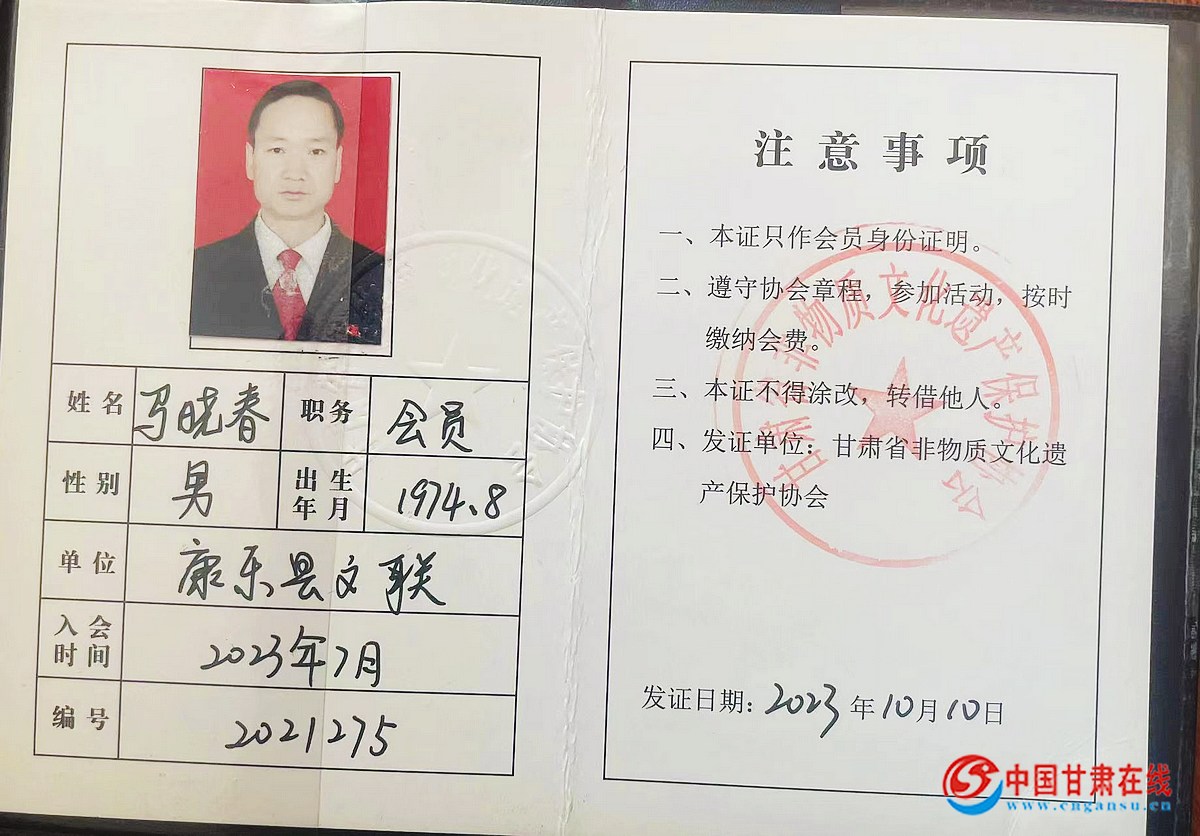 姓名 马晓春 职务 会员
性别 男 出生年月 1974.8
单位 康乐县文联
入会时间 2023年7月
编号 2021275
注意事项
一、本证只作会员身份证明。
二、遵守协会章程，参加活动，按时
缴纳会费。
三、本证不得涂改，转借他人。
四、发证单位：甘肃省非物质文化遗
产保护协会
甘肃省非物质文化遗产保护协会
发证日期：2023年10月10日
中国甘肃在线
www.cngansu.cn